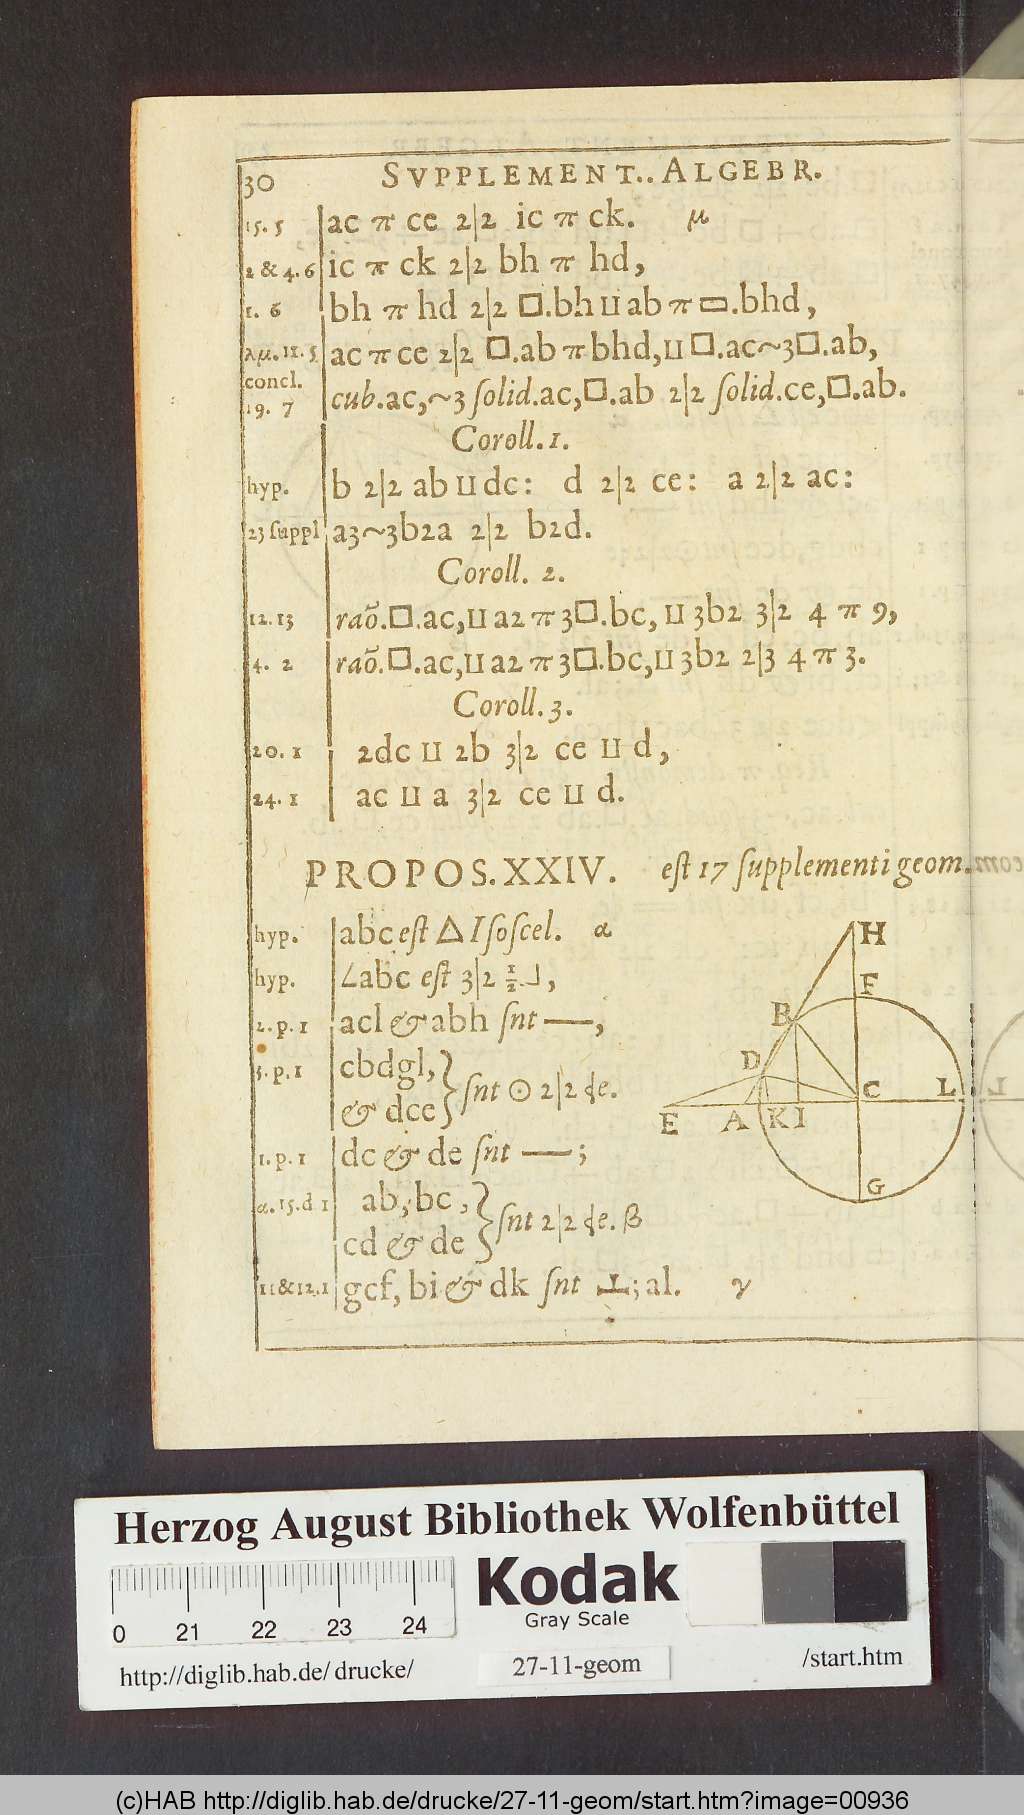 30 SVPPLEMENT.. ALGEBR.
15. 5 ac π ce 2|2 ic π ck. μ
2 & 4. 6 ic π ck 2|2 bh π hd,
1. 6 bh π hd 2|2 □.bh ⊔ ab π ▭.bhd,
λμ. 11. 5 ac π ce 2|2 □.ab π bhd, ⊔ □.ac ~ 3□.ab,
concl.
19. 7 cub.ac, ~ 3 ſolid.ac, □.ab 2|2 ſolid.ce, □.ab.
Coroll. 1.
hyp. b 2|2 ab ⊔ dc: d 2|2 ce: a 2|2 ac:
23 ſuppl a3 ~ 3b2a 2|2 b2d.
Coroll. 2.
12. 13 raõ.□.ac, ⊔ a2 π 3□.bc, ⊔ 3b2 3|2 4 π 9,
4. 2 raõ.□.ac, ⊔ a2 π 3□.bc, ⊔ 3b2 2|3 4 π 3.
Coroll. 3.
20. 1 2dc ⊔ 2b 3|2 ce ⊔ d,
24. 1 ac ⊔ a 3|2 ce ⊔ d.
PROPOS. XXIV. eſt 17 ſupplementi geom.
hyp. abc eſt △ Iſoſcel. α
hyp. ∠abc eſt 3|2 ½ ┘,
2. p. 1 acl & abh ſnt —,
3. p. 1 cbdgl,
& dce } ſnt ⊙ 2|2 de.
1. p. 1 dc & de ſnt —;
α. 15. d 1 ab, bc,
cd & de } ſnt 2|2 de. β
11 & 12. 1 gcf, bi & dk ſnt ⊥; al. γ
H
F
B
D
C
L
E
A
K
I
G
Herzog August Bibliothek Wolfenbüttel
Kodak
Gray Scale
0 21 22 23 24
http://diglib.hab.de/drucke/ 27-11-geom /start.htm
(c)HAB http://diglib.hab.de/drucke/27-11-geom/start.htm?image=00936